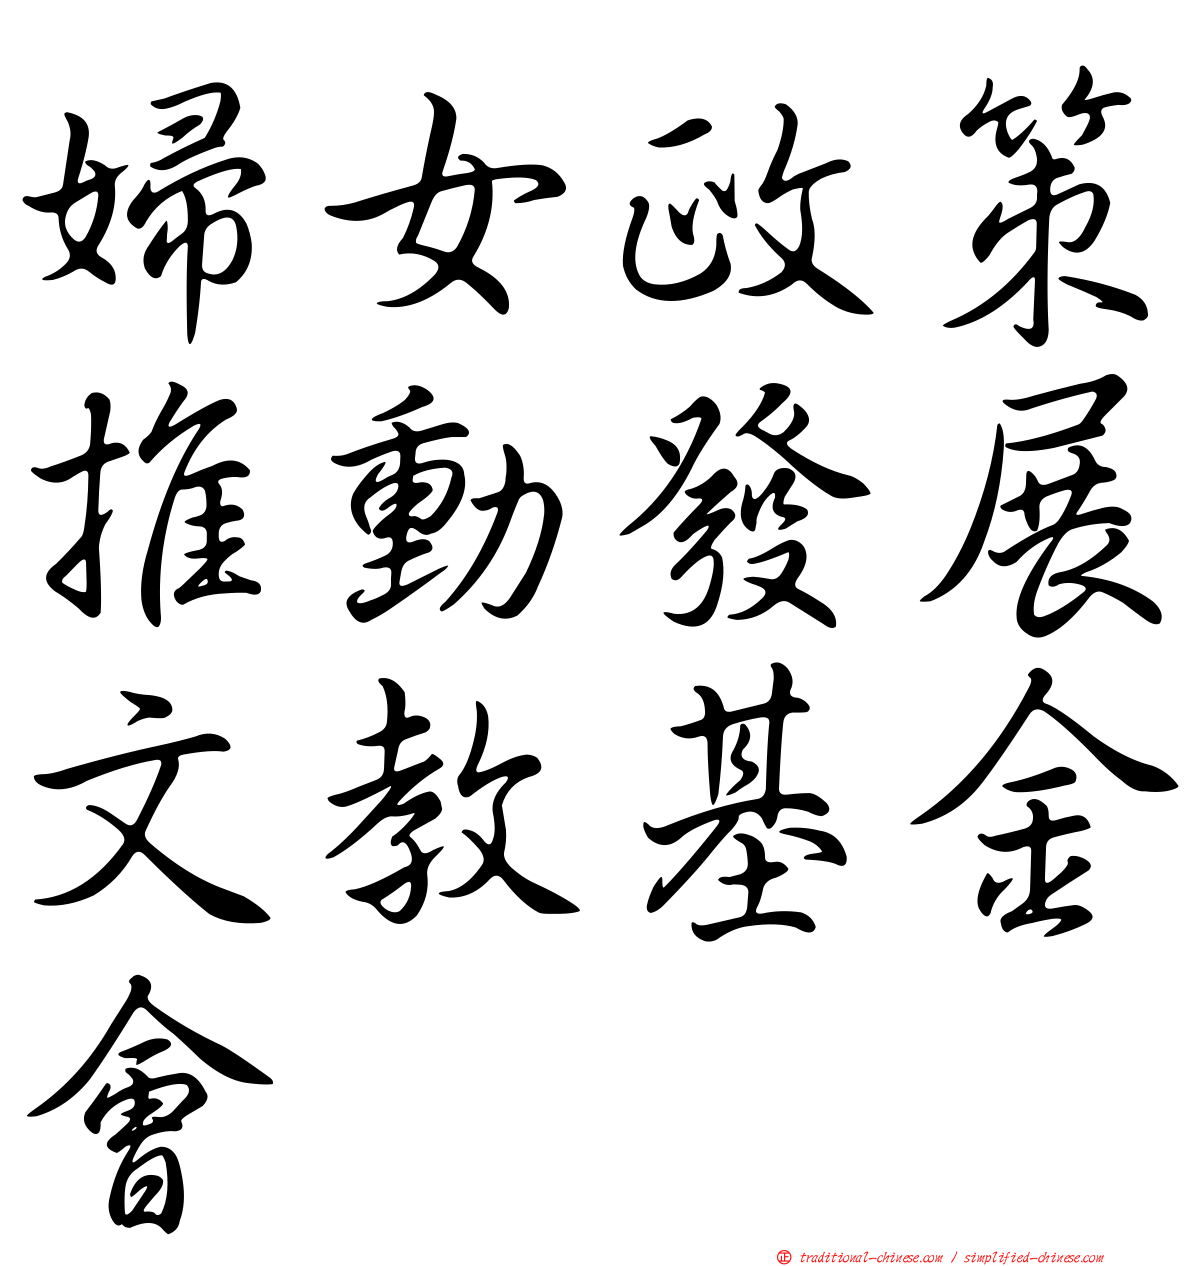 婦女政策
推動發展
文教基金
會
正 traditional-chinese.com / simplified-chinese.com